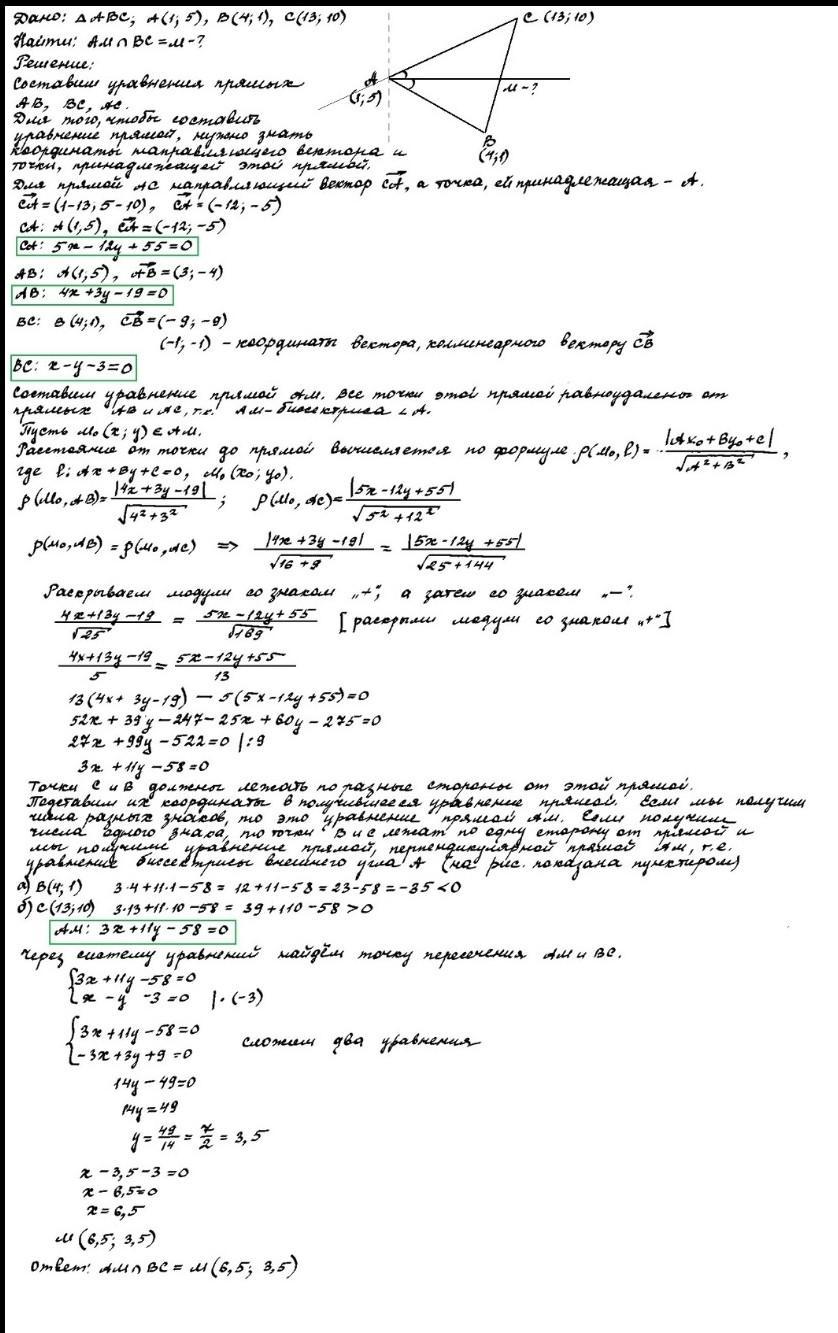 Дано: △ABC, A(1;5), B(4;1), C(13;10)
Найти: AM∩BC=M-?
Решение:
Составим уравнения прямых
AB, BC, AC.
Для того, чтобы составить
уравнение прямой, нужно знать
координаты направляющего вектора и
точки, принадлежащей этой прямой.
C (13;10)
A
(1;5)
M-?
B
(4;1)
Для прямой AC направляющий вектор C͞A, а точка, ей принадлежащая – A.
C͞A=(1-13; 5-10), C͞A=(-12;-5)
CA: A(1,5), C͞A=(-12;-5)
CA: 5x-12y+55=0
AB: A(1,5), A͞B=(3;-4)
AB: 4x+3y-19=0
BC: B(4;1), C͞B=(-9;-9)
(-1;-1) - координаты вектора, коллинеарного вектору C͞B
BC: x-y-3=0
Составим уравнение прямой AM. Все точки этой прямой равноудалены от
прямых AB и AC, т.е. AM-биссектриса ∠A.
Пусть M₀(x;y)∈AM.
Расстояние от точки до прямой вычисляется по формуле ρ(M₀,l)=|Ax₀+By₀+C|/√(A²+B²),
где l: Ax+By+C=0, M₀(x₀;y₀).
ρ(M₀,AB)=|4x+3y-19|/√(4²+3²); ρ(M₀,AC)=|5x-12y+55|/√(5²+12²)
ρ(M₀,AB)=ρ(M₀,AC) => |4x+3y-19|/√(16+9) = |5x-12y+55|/√(25+144)
Раскрываем модули со знаком „+“, а затем со знаком „-“.
4x+13y-19/√25 = 5x-12y+55/√169 [раскрыли модули со знаком „+“]
4x+13y-19/5 = 5x-12y+55/13
13(4x+3y-19) - 5(5x-12y+55)=0
52x+39y-247-25x+60y-275=0
27x+99y-522=0 |:9
3x+11y-58=0
Точки C и B должны лежать по разные стороны от этой прямой.
Подставим их координаты в получившееся уравнение прямой. Если мы получим
числа разных знаков, то это уравнение прямой AM. Если получим
числа одного знака, то точки B и C лежат по одну сторону от прямой и
мы получили уравнение прямой, перпендикулярной прямой AM, т.е.
уравнение биссектрисы внешнего угла A (на рис. показана пунктиром)
а) B(4;1) 3·4+11·1-58=12+11-58=23-58=-35<0
б) C(13;10) 3·13+11·10-58=39+110-58>0
AM: 3x+11y-58=0
Через систему уравнений найдём точку пересечения AM и BC.
{3x+11y-58=0
x-y-3=0 |·(-3)
{3x+11y-58=0
-3x+3y+9=0 сложим два уравнения
14y-49=0
14y=49
y=49/14=7/2=3,5
x-3,5-3=0
x-6,5=0
x=6,5
M(6,5; 3,5)
Ответ: AM∩BC=M(6,5; 3,5)